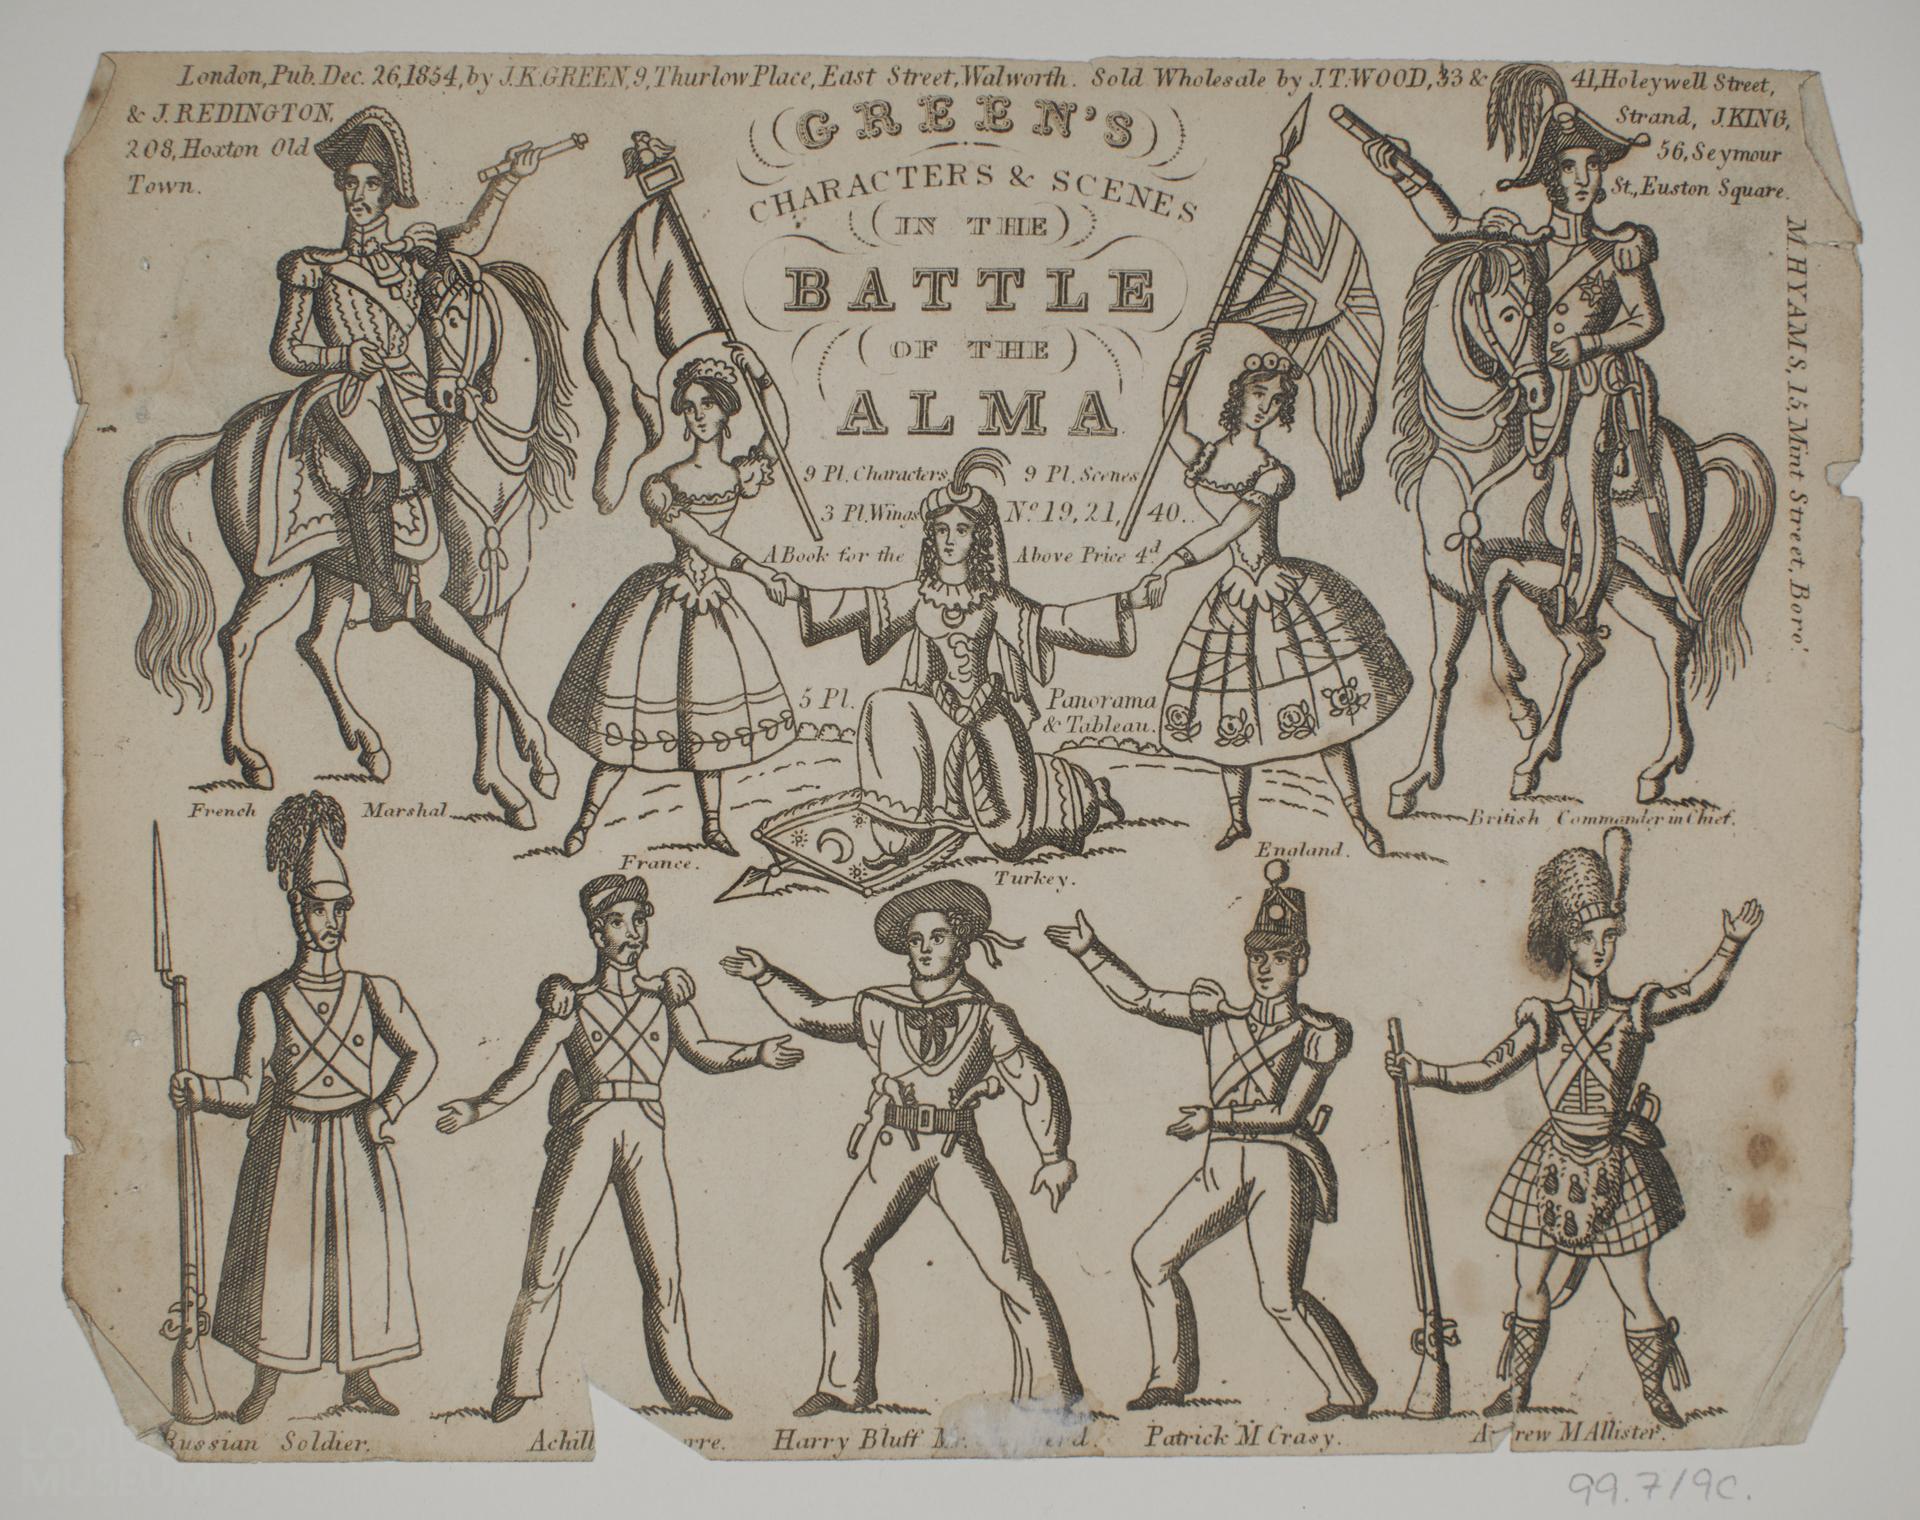 London, Pub. Dec. 26, 1854, by J.K. GREEN, 9, Thurlow Place, East Street, Walworth. Sold Wholesale by J.T. WOOD, 33 & 41, Holeywell Street,
& J. REDINGTON,
208, Hoxton Old
Town.
Strand, J. KING,
56, Seymour
St., Euston Square.
M. HYAMS, 15, Mint Street, Boro'.
GREEN'S
CHARACTERS & SCENES
(IN THE)
BATTLE
(OF THE)
ALMA
9 Pl. Characters 9 Pl. Scenes
3 Pl. Wings No. 19, 21, 40..
A Book for the Above Price 4d.
5 Pl. Panorama
& Tableau.
French Marshal
British Commander in Chief.
France.
England.
Turkey.
Russian Soldier.
Achill rre.
Harry Bluff
Patrick M Crasy.
A rew M Allister.
99.7/9c.
LON
MUSEUM